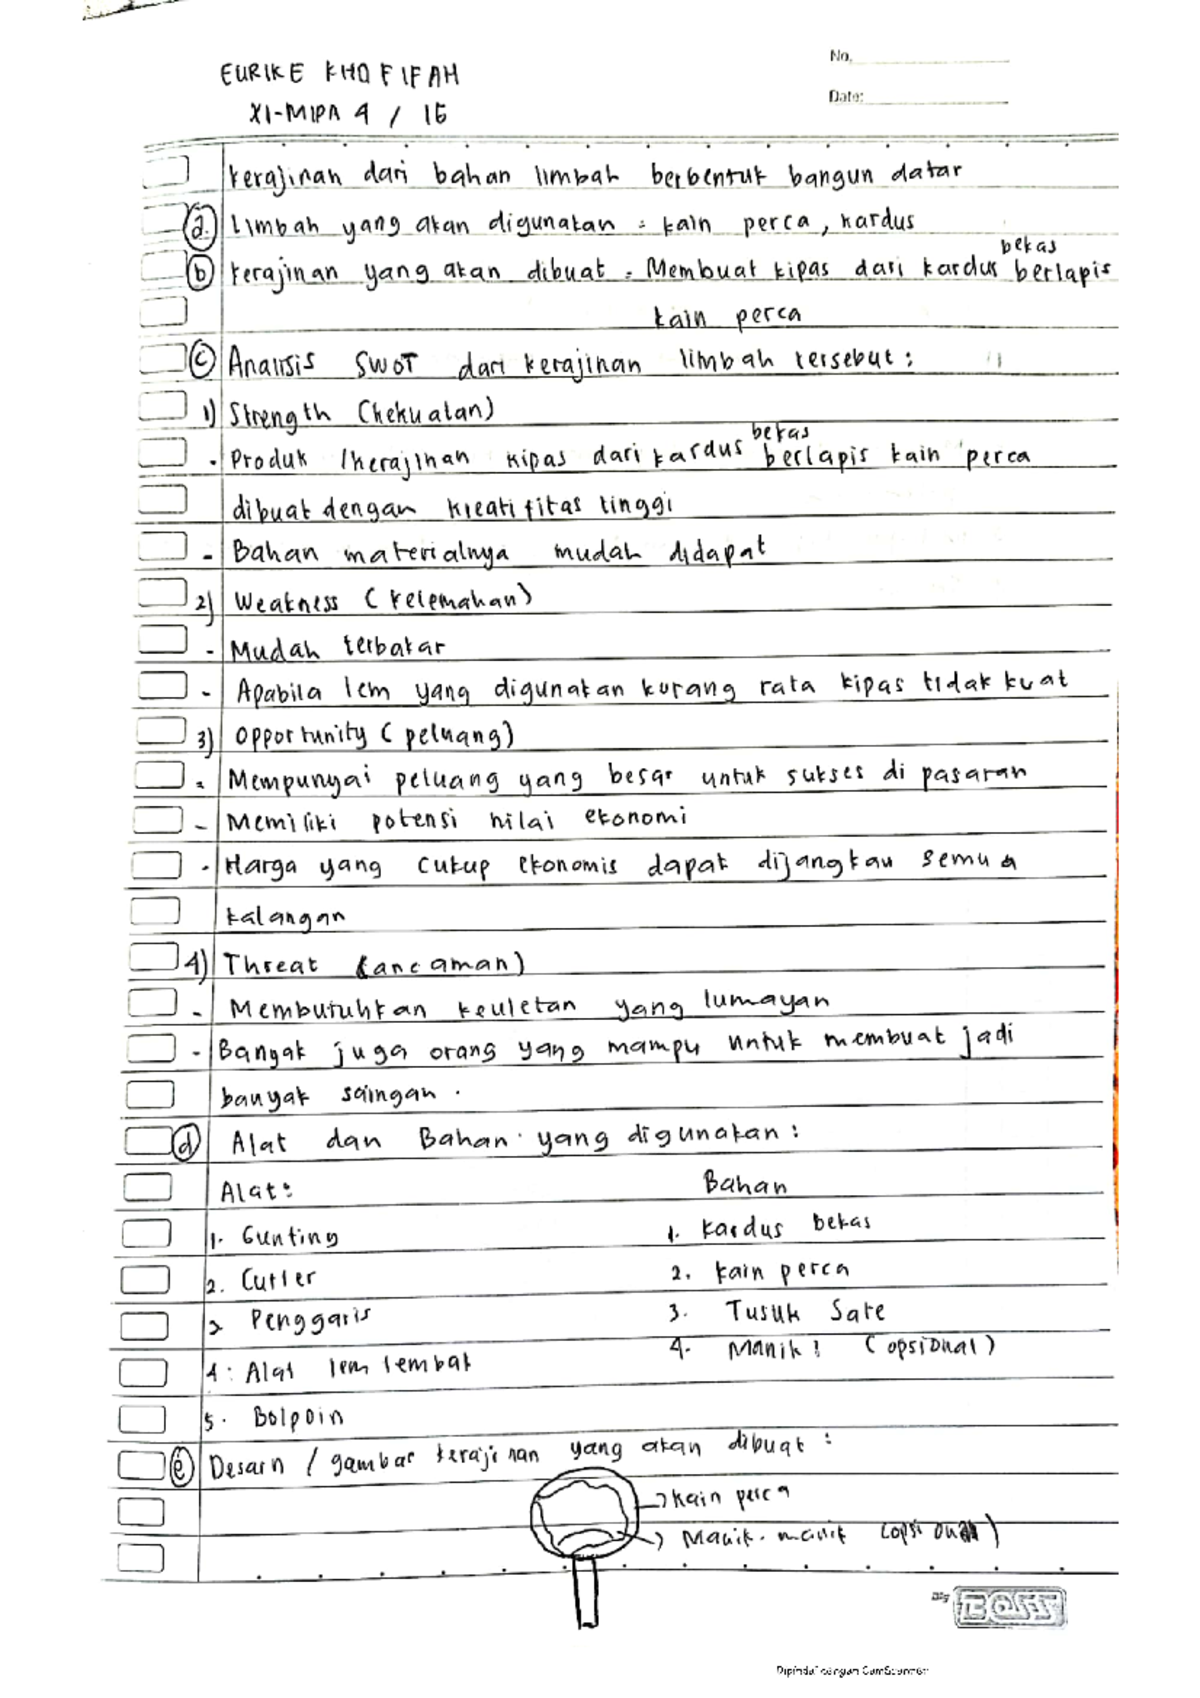 No.
EURIKE KHOFIFAH
Date:
XI-MIPA 4 / 15
kerajinan dari bahan limbah berbentuk bangun datar
a. Limbah yang akan digunakan : kain perca, kardus
bekas
b kerajinan yang akan dibuat : Membuat kipas dari kardus berlapis
kain perca
c Analisis SWOT dari kerajinan limbah tersebut :
1) Strength (kekuatan)
bekas
- Produk /kerajinan kipas dari kardus berlapis kain perca
dibuat dengan kreatifitas tinggi
- Bahan materialnya mudah didapat
2) Weakness (kelemahan)
- Mudah terbakar
- Apabila lem yang digunakan kurang rata kipas tidak kuat
3) Opportunity (peluang)
- Mempunyai peluang yang besar untuk sukses di pasaran
- Memiliki potensi nilai ekonomi
- Harga yang cukup ekonomis dapat dijangkau semua
kalangan
4) Threat (ancaman)
- Membutuhkan keuletan yang lumayan
- Banyak juga orang yang mampu untuk membuat jadi
banyak saingan .
d Alat dan Bahan yang digunakan :
Alat : Bahan
1. Gunting 1. Kardus bekas
2. Cutter 2. kain perca
3 Penggaris 3. Tusuk Sate
4. Manik² (opsional)
4. Alat lem tembak
5. Bolpoin
e Desain / gambar kerajinan yang akan dibuat :
kain perca
Manik-manik (opsional)
BOSS
Dipindai dengan CamScanner